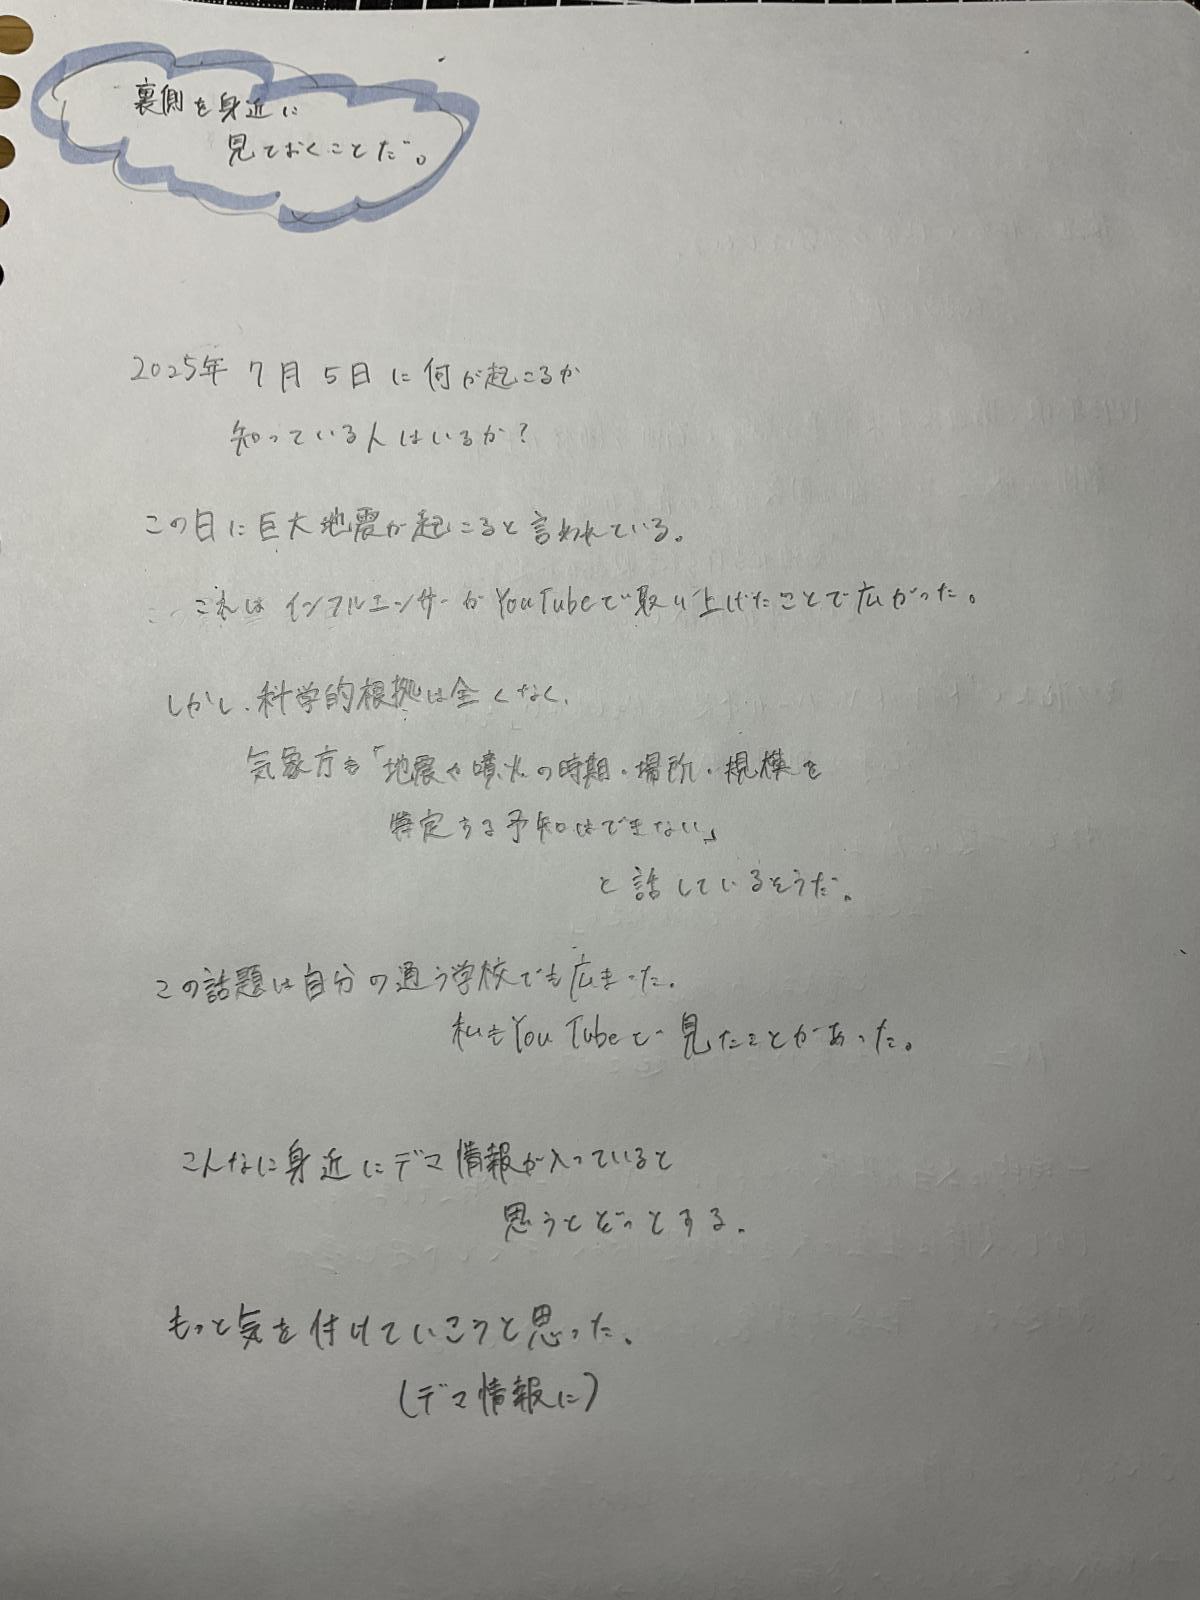 裏側を身近に
見ておくことだ。
2025年 7月 5日に何が起こるか
知っている人はいるか?
この日に巨大地震が起こると言われている。
これはインフルエンサーがYouTubeで取り上げたことで広がった。
しかし、科学的根拠は全くなく、
気象庁も「地震や噴火の時期・場所・規模を
特定する予知はできない」
と話しているそうだ。
この話題は自分の通う学校でも広まった。
私もYouTubeで見たことがあった。
こんなに身近にデマ情報が入っていると
思うとぞっとする。
もっと気を付けていこうと思った。
(デマ情報に)